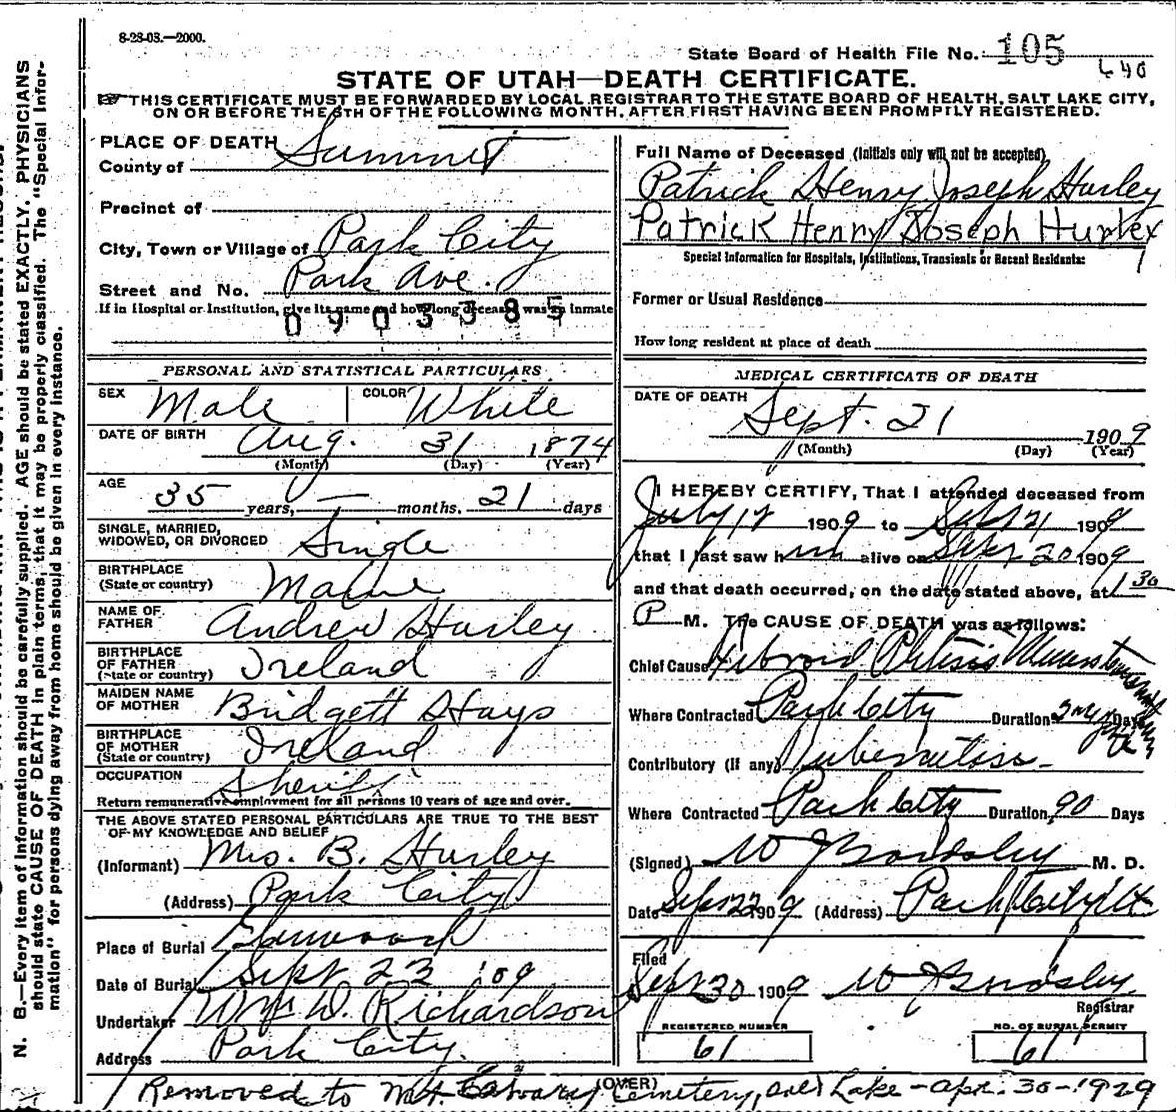 8-28-08.—2000.
State Board of Health File No. 105
640
STATE OF UTAH—DEATH CERTIFICATE.
THIS CERTIFICATE MUST BE FORWARDED BY LOCAL REGISTRAR TO THE STATE BOARD OF HEALTH, SALT LAKE CITY,
ON OR BEFORE THE 5TH OF THE FOLLOWING MONTH, AFTER FIRST HAVING BEEN PROMPTLY REGISTERED.
PLACE OF DEATH
County of Summit
Precinct of
City, Town or Village of Park City
Street and No. Park Ave.
If in Hospital or Institution, give its name and how long deceased was an inmate
0903385
PERSONAL AND STATISTICAL PARTICULARS
SEX Male COLOR White
DATE OF BIRTH Aug. 31 1874
(Month) (Day) (Year)
AGE 35 years, — months. 21 days
SINGLE, MARRIED,
WIDOWED, OR DIVORCED Single
BIRTHPLACE
(State or country) Maine
NAME OF
FATHER Andrew Hurley
BIRTHPLACE
OF FATHER
(State or country) Ireland
MAIDEN NAME
OF MOTHER Bridgett Hays
BIRTHPLACE
OF MOTHER
(State or country) Ireland
OCCUPATION Sheriff
Return remunerative employment for all persons 10 years of age and over.
THE ABOVE STATED PERSONAL PARTICULARS ARE TRUE TO THE BEST
OF MY KNOWLEDGE AND BELIEF
(Informant) Mrs. B. Hurley
(Address) Park City
Place of Burial Glenwood
Date of Burial Sept 23 '09
Undertaker Wm D. Richardson
Address Park City.
Full Name of Deceased (Initials only will not be accepted)
Patrick Henry Joseph Hurley
Patrick Henry Joseph Hurley
Special Information for Hospitals, Institutions, Transients or Recent Residents:
Former or Usual Residence
How long resident at place of death
MEDICAL CERTIFICATE OF DEATH
DATE OF DEATH
Sept. 21 1909
(Month) (Day) (Year)
I HEREBY CERTIFY, That I attended deceased from
July 12 1909 to Sept 21 1909
that I last saw him alive on Sept 20 1909
and that death occurred, on the date stated above, at 1 30
P M. The CAUSE OF DEATH was as follows:
Chief Cause Fibroid Phtisis
Where Contracted Park City Duration Days
Contributory (If any) Tuberculosis
Where Contracted Park City Duration 90 Days
(Signed) M. D.
Date Sept 22 1909 (Address) Park City Ut
Filed
Sept 30 1909
Registrar
REGISTERED NUMBER NO. OF BURIAL PERMIT
61 61
(OVER)
Removed to Mt. Calvary Cemetery, Salt Lake - Apr. 30 - 1929
N. B.—Every item of information should be carefully supplied. AGE should be stated EXACTLY. PHYSICIANS
should state CAUSE OF DEATH in plain terms, that it may be properly classified. The "Special Infor-
mation" for persons dying away from home should be given in every instance.